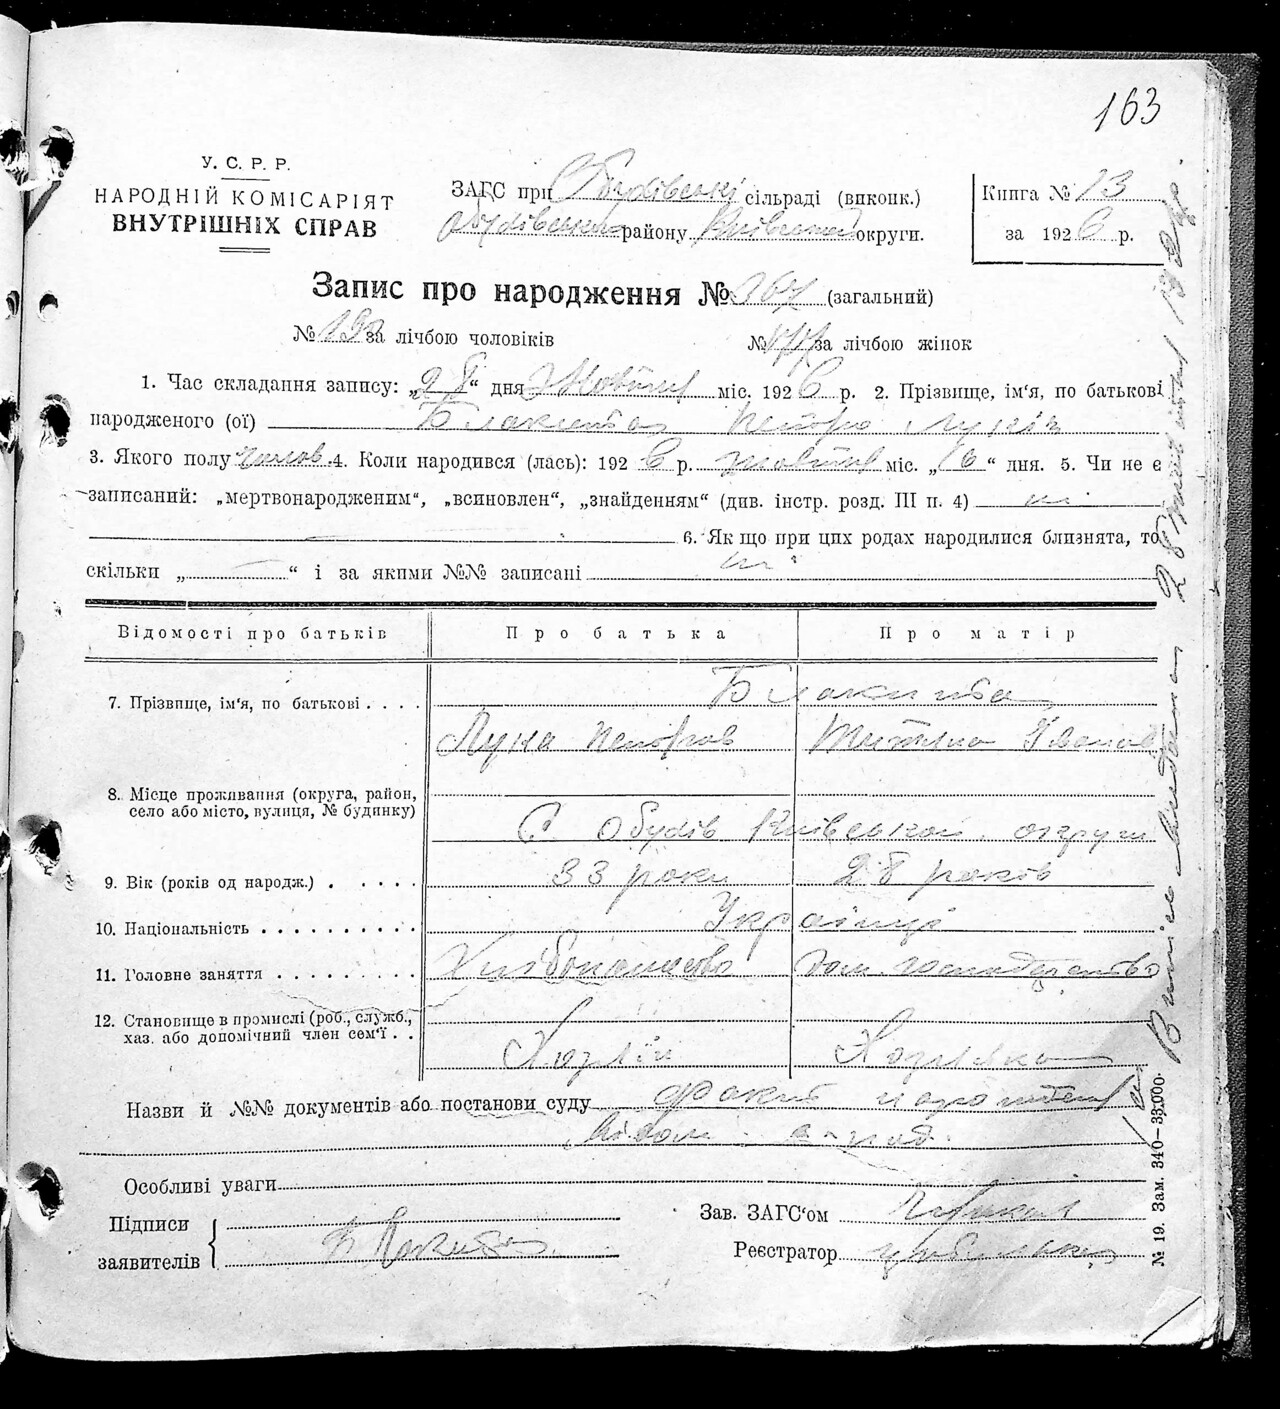 163
У. С. Р. Р.
НАРОДНІЙ КОМІСАРІЯТ
ВНУТРІШНІХ СПРАВ
ЗАГС при сільраді (виконк.)
району Київської округи.
Книга № 13
за 1926 р.
Запис про народження № 367 (загальний)
№ 190 за лічбою чоловіків
№ 177 за лічбою жінок
1. Час складання запису: „28“ дня Жовтня міс. 1926 р. 2. Прізвище, ім‘я, по батькові
народженого (ої) Блакита Петро Луків
3. Якого полу чолов. 4. Коли народився (лась): 1926 р. жовтня міс. „16“ дня. 5. Чи не є
записаний: „мертвонародженим“, „всиновлен“, „знайденням“ (див. інстр. розд. III п. 4) ні
6. Як що при цих родах народилися близнята, то
скільки „ “ і за якими №№ записані ні
Відомості про батьків Про батька Про матір
7. Прізвище, ім‘я, по батькові . . . . Блакита
Лука Петров Тетяна Іванов
8. Місце проживання (округа, район,
село або місто, вулиця, № будинку)
С. Обухів Київської округи
9. Вік (років од народж.) . . . . . . 33 роки 28 років
10. Національність . . . . . . . . . . Українці
11. Головне заняття . . . . . . . . . Хліборобство дом господарство
12. Становище в промислі (роб., служб.,
хаз. або допомічний член сем‘ї . .
Хазяїн Хазяйка
Назви й №№ документів або постанови суду
Особливі уваги
Підписи
заявителів
Зав. ЗАГС‘ом
Реєстратор
№ 19. Зам. 340—33.000.